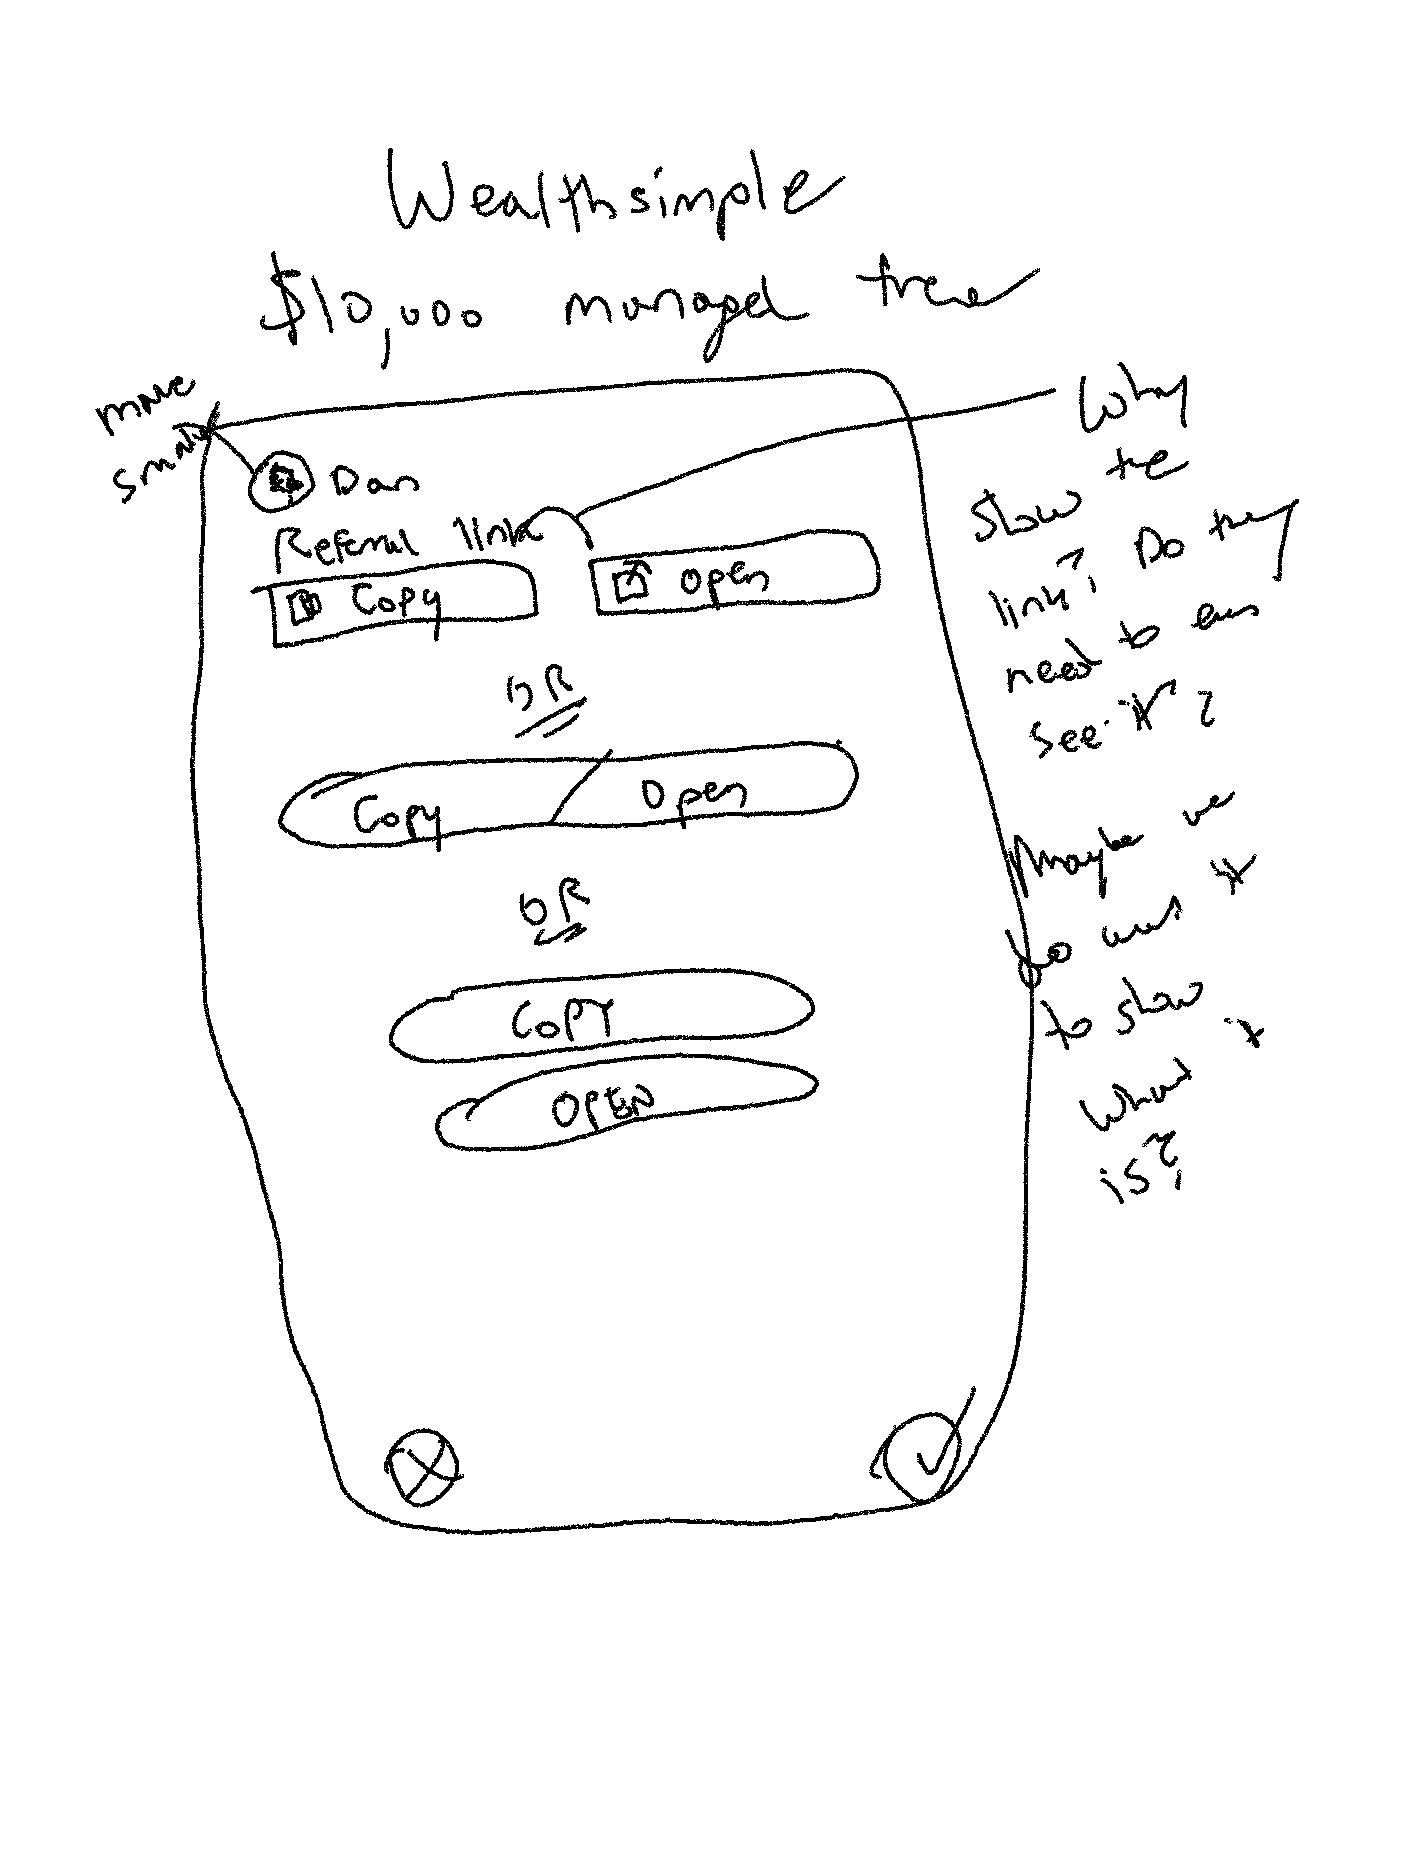 Wealthsimple
$10,000 managed free
more
small
Dan
Referral link
Copy
Open
OR
Copy
Open
OR
COPY
OPEN
Why
show the
link? Do they
need to even
see it?
Maybe we
do want it
to show
what it
is?